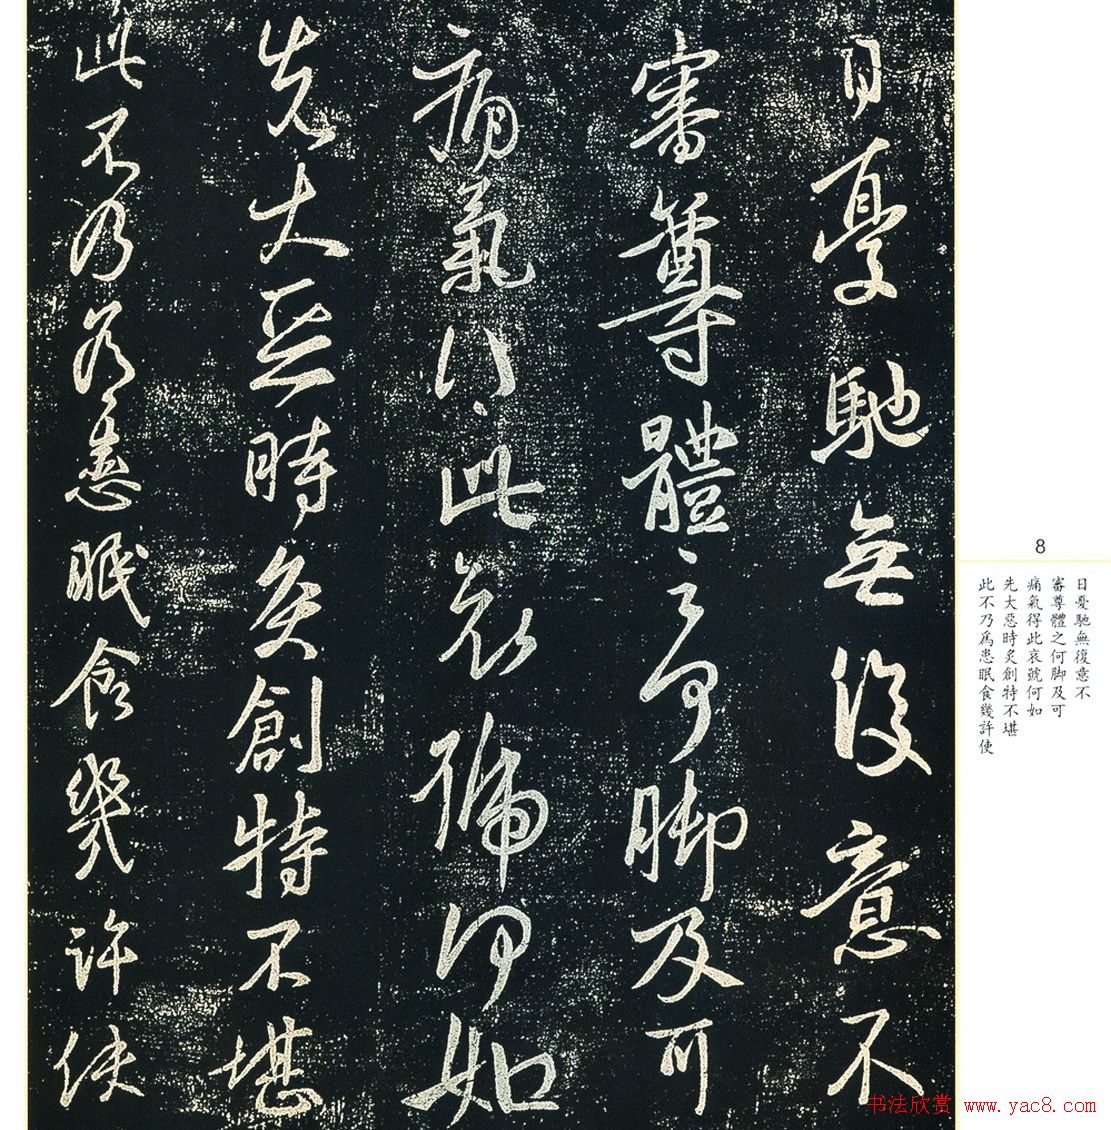 日憂馳無復意不
審尊體之何脚及可
痛氣得此哀號何如
先大惡時炙創特不堪
此不乃為患眠食幾許使
8
日憂馳無復意不
審尊體之何脚及可
痛氣得此哀號何如
先大惡時炙創特不堪
此不乃爲患眠食幾許使
书法欣赏 www.yac8.com